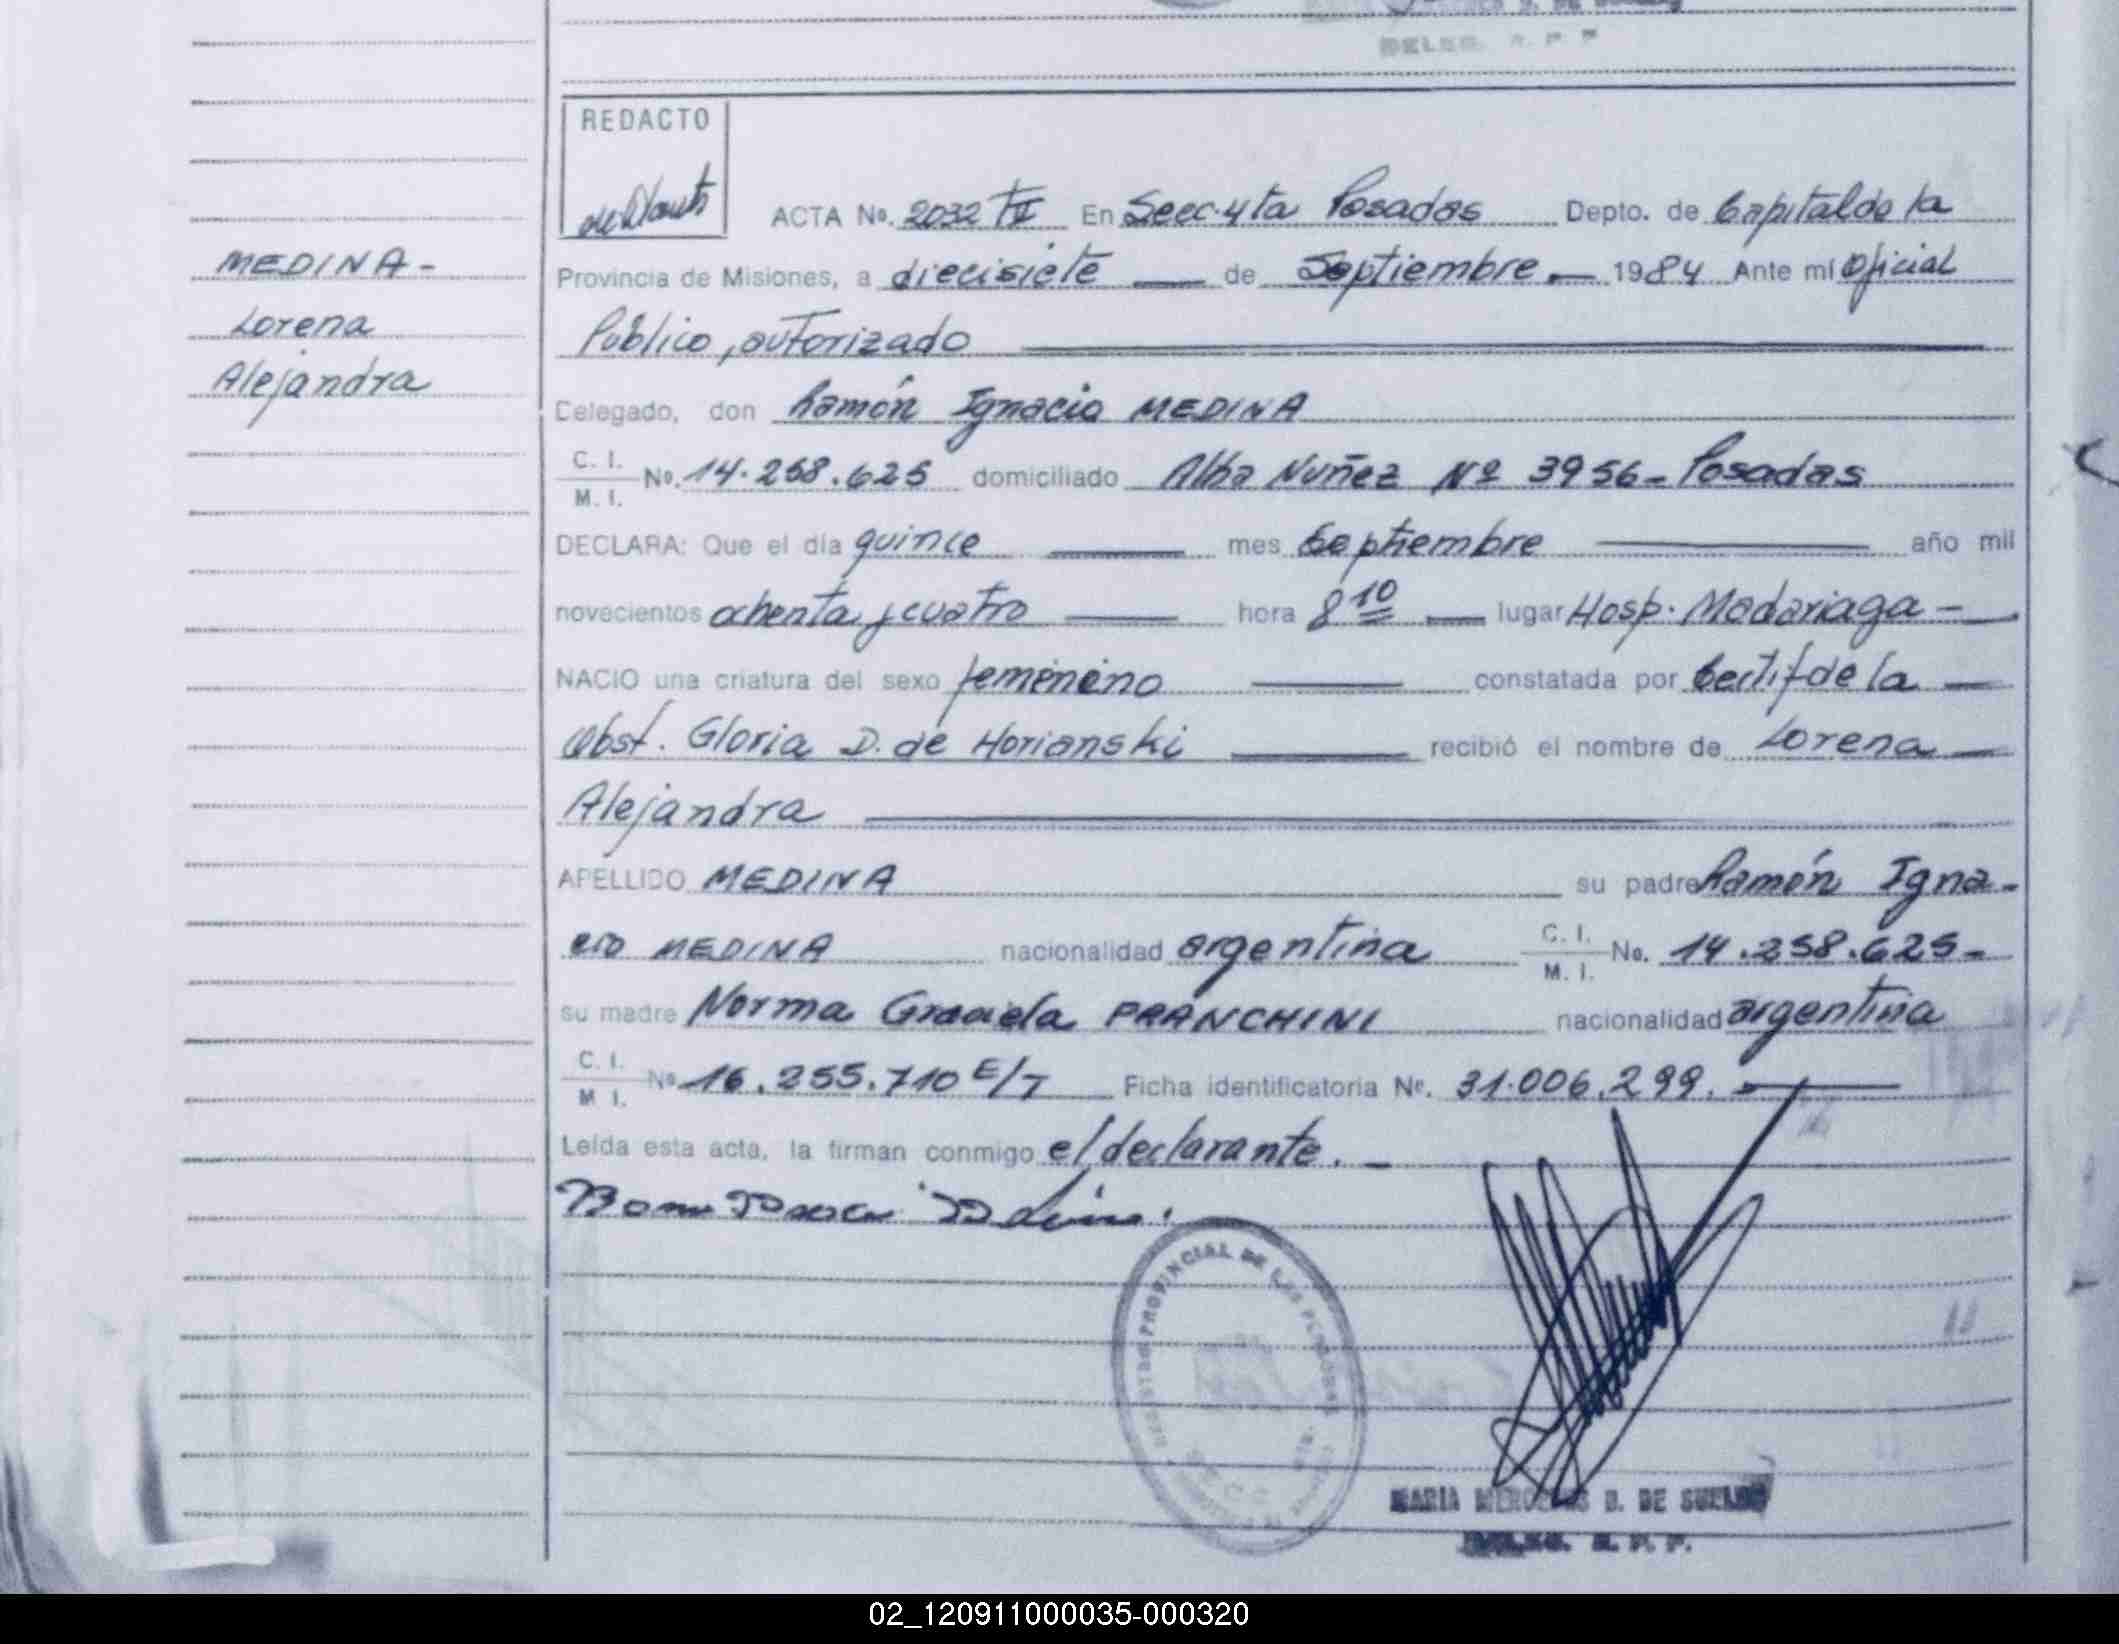 DELEG. R. P. P.
REDACTO
ACTA No. 2032 TII En Secc. 4ta Posadas Depto. de Capital de la
MEDINA -
Provincia de Misiones, a diecisiete de Septiembre. 1984 Ante mí Oficial
Lorena
Público, autorizado
Alejandra
Delegado, don Ramón Ignacio MEDINA
C. I.
M. I. No. 14.258.625 domiciliado Alba Nuñez Nº 3956 - Posadas
DECLARA: Que el día quince mes Septiembre año mil
novecientos ochenta y cuatro hora 8 10 lugar Hosp. Madariaga -
NACIO una criatura del sexo femenino constatada por Certif de la
Obst. Gloria D. de Horianski recibió el nombre de Lorena
Alejandra
APELLIDO MEDINA su padre Ramón Igna-
cio MEDINA nacionalidad argentina C. I. M. I. No. 14.258.625-
su madre Norma Graciela FRANCHINI nacionalidad argentina
C. I. M. I. No. 16.255.710 E/T Ficha identificatoria No. 31.006.299.
Leída esta acta, la firman conmigo el declarante. -
REGISTRO PROVINCIAL DE LAS PERSONAS
MARIA MERCEDES D. DE
DELEG. R. P. P.
02_120911000035-000320